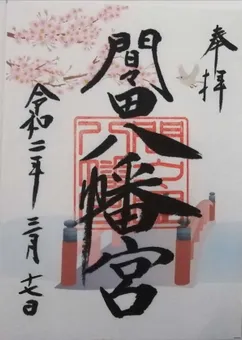 奉拝
間々田八幡宮
令和二年三月十七日